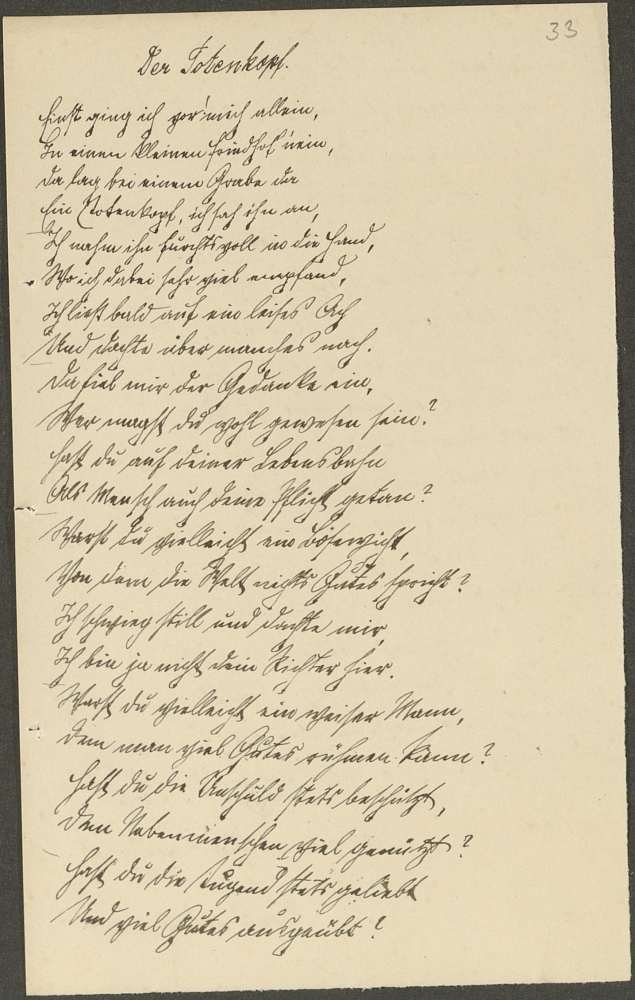 33
Der Totenkopf.
Einst ging ich vor mich allein,
In einen kleinen Friedhof 'nein,
Da lag bei einem Grabe da
Ein Totenkopf, ich sah ihn an,
Ich nahm ihn furchtsvoll in die Hand,
Wo ich dabei sehr viel empfand,
Ich ließ bald auf ein leises Ach
Und dachte über manches nach.
Da fiel mir der Gedanke ein,
Wer magst du wohl gewesen sein?
Hast du auf deiner Lebensbahn
Als Mensch auch deine Pflicht getan?
Warst du vielleicht ein Bösewicht,
Von dem die Welt nichts Gutes spricht?
Ich schwieg still und dachte mir,
Ich bin ja nicht dein Richter hier.
Warst du vielleicht ein weiser Mann,
Dem man viel Gutes rühmen kann?
Hast du die Unschuld stets beschützt,
Dem Nebenmenschen viel genützt?
Hast du die Tugend stets geliebt
Und viel Gutes ausgeübt?